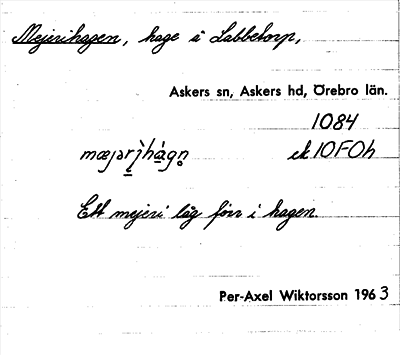 Mejerihagen, hage i Labbetorp,
Askers sn, Askers hd, Örebro län.
1084
mæjərì̱há̱gn̥ ek 10F0h
Ett mejeri låg förr i hagen.
Per-Axel Wiktorsson 1963